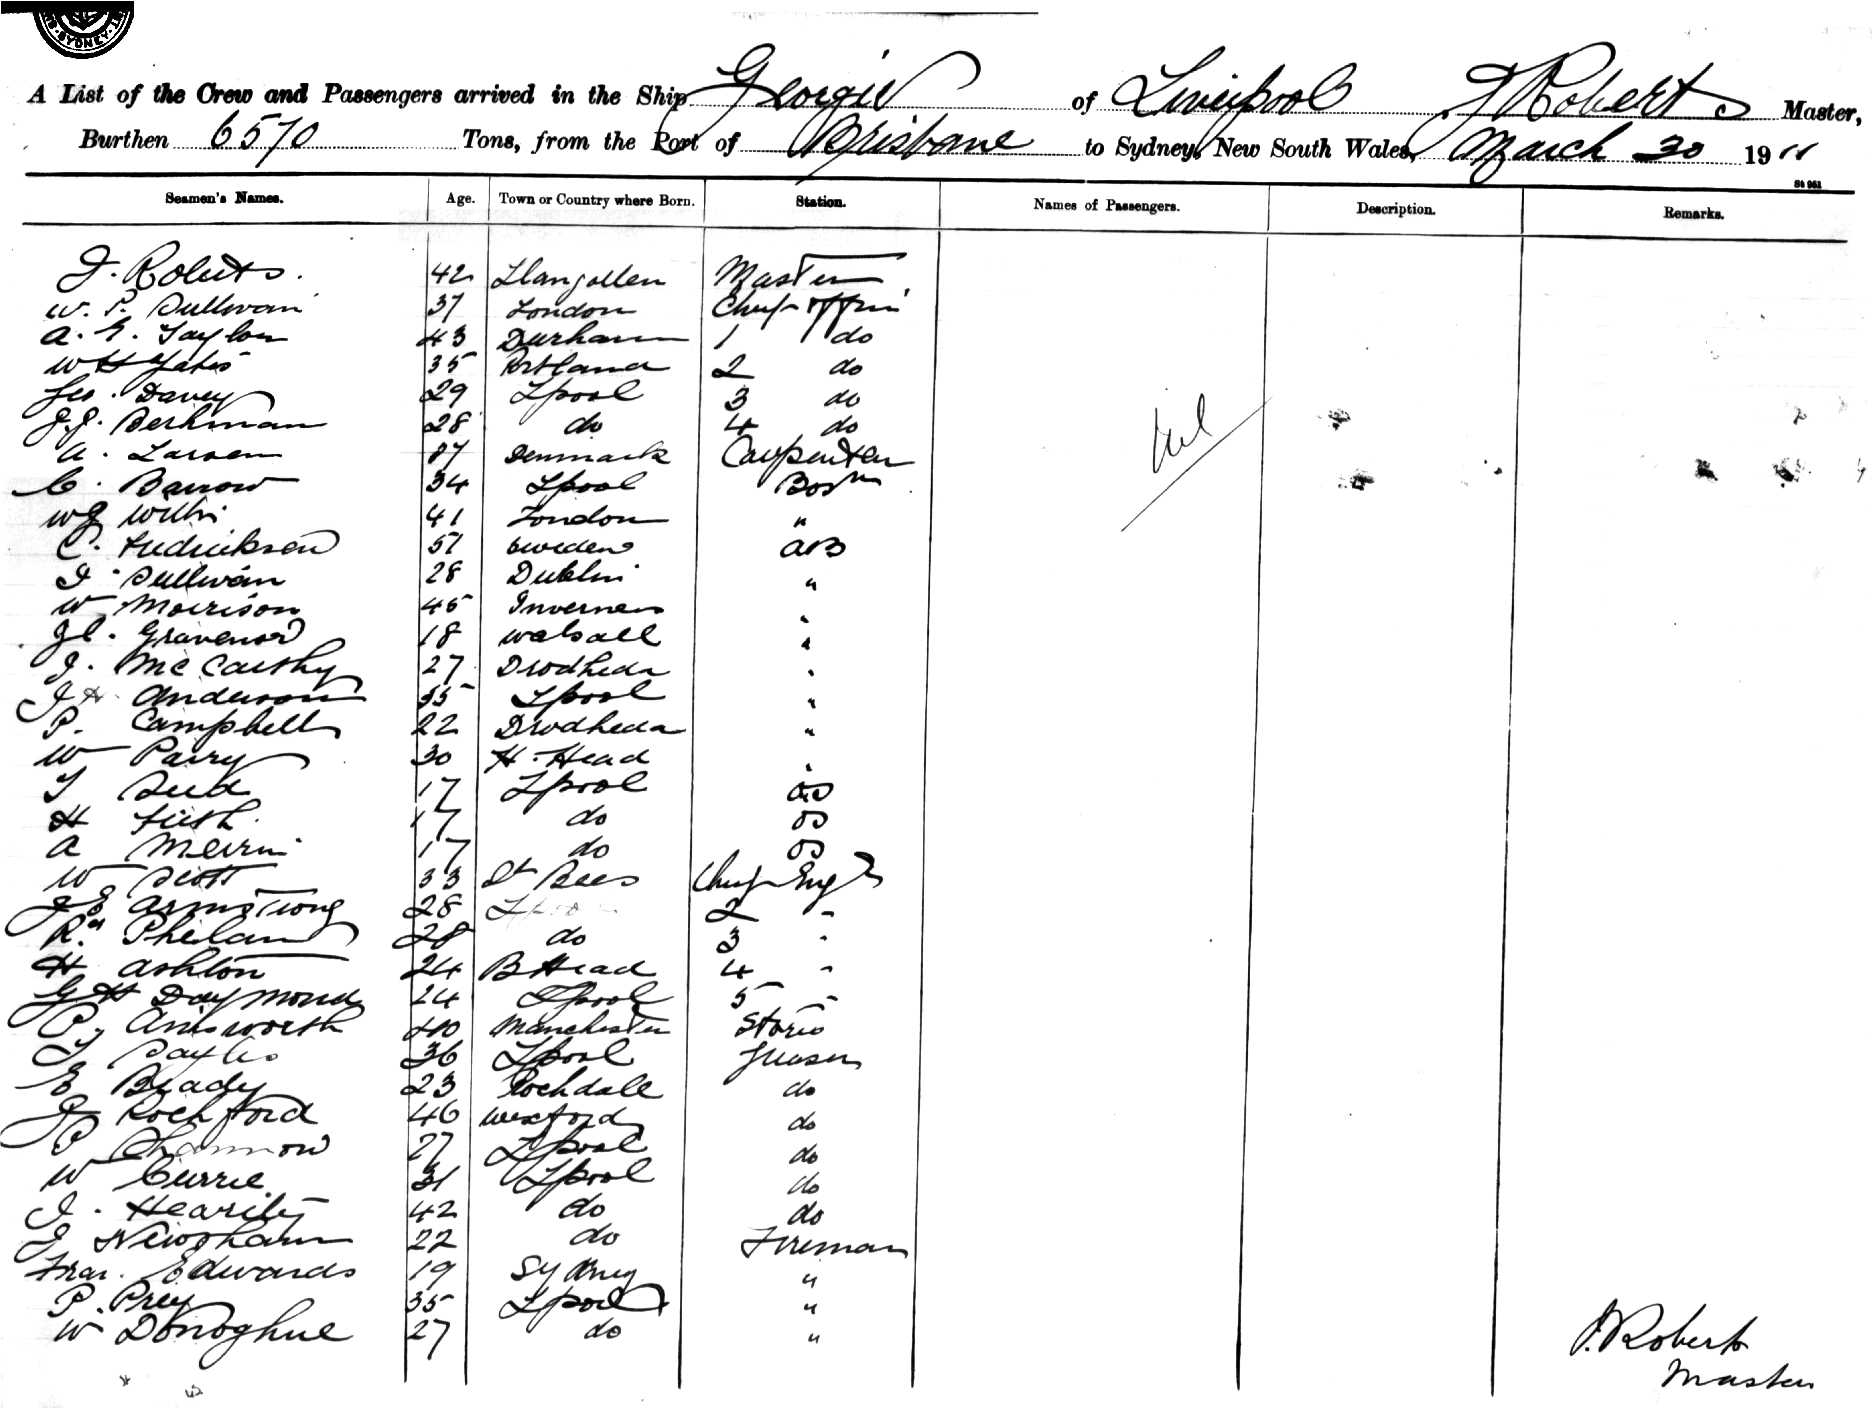 SYDNEY
A List of the Crew and Passengers arrived in the Ship Georgic of Liverpool J Roberts Master,
Burthen 6570 Tons, from the Port of Brisbane to Sydney, New South Wales, March 30 1911
St 961
Seamen's Names. Age. Town or Country where Born. Station. Names of Passengers. Description. Remarks.
J. Roberts. 42 Llangollen Master
W. P. Sullivan 37 London Chief Officer
A. E. Taylor 43 Durham 1 do
W H Yates 35 Portland 2 do
Geo. Davey 29 Lpool 3 do
J.J. Berhman 28 do 4 do
Nil
A. Larsen Denmark Carpenter
C. Barrow 34 Lpool Bosn
WJ 41 London "
C. Fredricksen 51 Sweden AB
J. Sullivan 28 Dublin "
W Morrison 45 Inverness "
Gravenor 18 Walsall "
J. McCarthy 27 Drodheda "
J H Anderson 35 Lpool "
P. Campbell 22 Drodheda "
W Parry 30 H. Head "
T 17 Lpool OS
H Firth 17 do OS
A 17 do OS
W Scott 33 St Bees Chief Engr
J E Armstrong 28 2 "
Rd Phelan 28 do 3 "
H Ashton 24 B Head 4 "
G H Daymond 24 Lpool 5 "
P. Ainsworth 40 Manchester Stores
T Sayles 36 Lpool Greaser
E Brady 23 Rochdale do
J Rochford 46 Wexford do
P Shannon 27 Lpool do
W Currie 31 Lpool do
J. 42 do do
J Newsham 22 do Fireman
Fras. Edwards 19 Sydney "
P. Prey 35 Lpool "
W Donoghue 27 do "
J. Roberts
Master